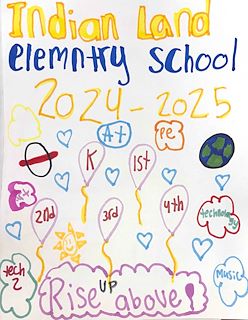 Indian Land
elemntry school
2024-2025
A+
PE
K
1st
2nd
3rd
4th
technology
tech
2
Music
UP
Rise above!